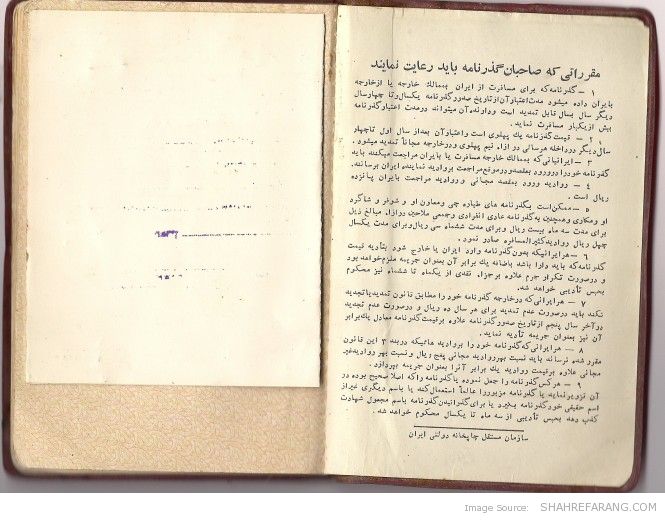 مقرراتی که صاحبان گذرنامه باید رعایت نمایند
۱ – گذرنامه که برای مسافرت از ایران بممالک خارجه یا از خارجه
بایران داده میشود مدت اعتبار آن از تاریخ صدور گذرنامه یکسال و تا چهار سال
دیگر سال بسال قابل تمدید است و دارنده آن میتواند در مدت اعتبار گذرنامه
بیش از یکبار مسافرت نماید .
۲ – قیمت گذرنامه یک پهلوی است و اعتبار آن بعد از سال اول تا چهار
سال دیگر در داخله هر سالی در ازاء نیم پهلوی و در خارجه مجاناً تمدید میشود .
۳ – ایرانیانی که بممالک خارجه مسافرت یا بایران مراجعت میکنند باید
گذرنامه خود را در ورود بمقصد و در موقع مراجعت بروادید نماینده ایران برسانند .
۴ – روادید ورود بمقصد مجانی و روادید مراجعت بایران پانزده
ریال است .
۵ – ممکن است بگذرنامه های طیاره چی و معاون او و شوفر و شاگرد
او و مکاری و همچنین به گذرنامه عادی انفرادی و جمعی ملاحین در ازاء مبالغ زیل
برای مدت سه ماه بیست ریال و برای مدت ششماه سی ریال و برای مدت یکسال
چهل ریال روادید کثیرالمسافره صادر نمود .
۶ – هر ایرانیکه بدون گذرنامه وارد ایران یا خارج شود بتأدیه قیمت
گذرنامه که باید دارا باشد باضافه یک برابر آن بعنوان جریمه ملزم خواهد بود
و در صورت تکرار جرم علاوه بر جزاء نقدی از یکماه تا ششماه نیز محکوم
بحبس تأدیبی خواهد شد .
۷ – هر ایرانی که در خارجه گذرنامه خود را مطابق قانون تمدید یا تجدید
نکند باید در صورت عدم تمدید برای هر سال ده ریال و در صورت عدم تجدید
در آخر سال پنجم از تاریخ صدور گذرنامه علاوه بر قیمت گذرنامه معادل یک برابر
آن نیز بعنوان جریمه تأدیه نماید .
۸ – هر ایرانی که گذرنامه خود را بروادید هائیکه در بند ۳ این قانون
مقرر شده نرساند باید نسبت بهر روادید مجانی پنج ریال و نسبت بهر روادید غیر
مجانی علاوه بر قیمت روادید یک برابر آنرا بعنوان جریمه بپردازد .
۹ – هر کس گذرنامه را جعل نموده یا گذرنامه را که اصلا صحیح بوده در
آن تزویر نماید یا گذرنامه مزبور را عالماً استعمال کند یا باسم دیگری غیر از
اسم حقیقی خود گذرنامه بگیرد یا برای گذرانیدن گذرنامه باسم مجعول شهادت
کذب دهد بحبس تأدیبی از سه ماه تا یکسال محکوم خواهد شد .
سازمان مستقل چاپخانه دولتی ایران
Image Source: SHAHREFARANG.COM